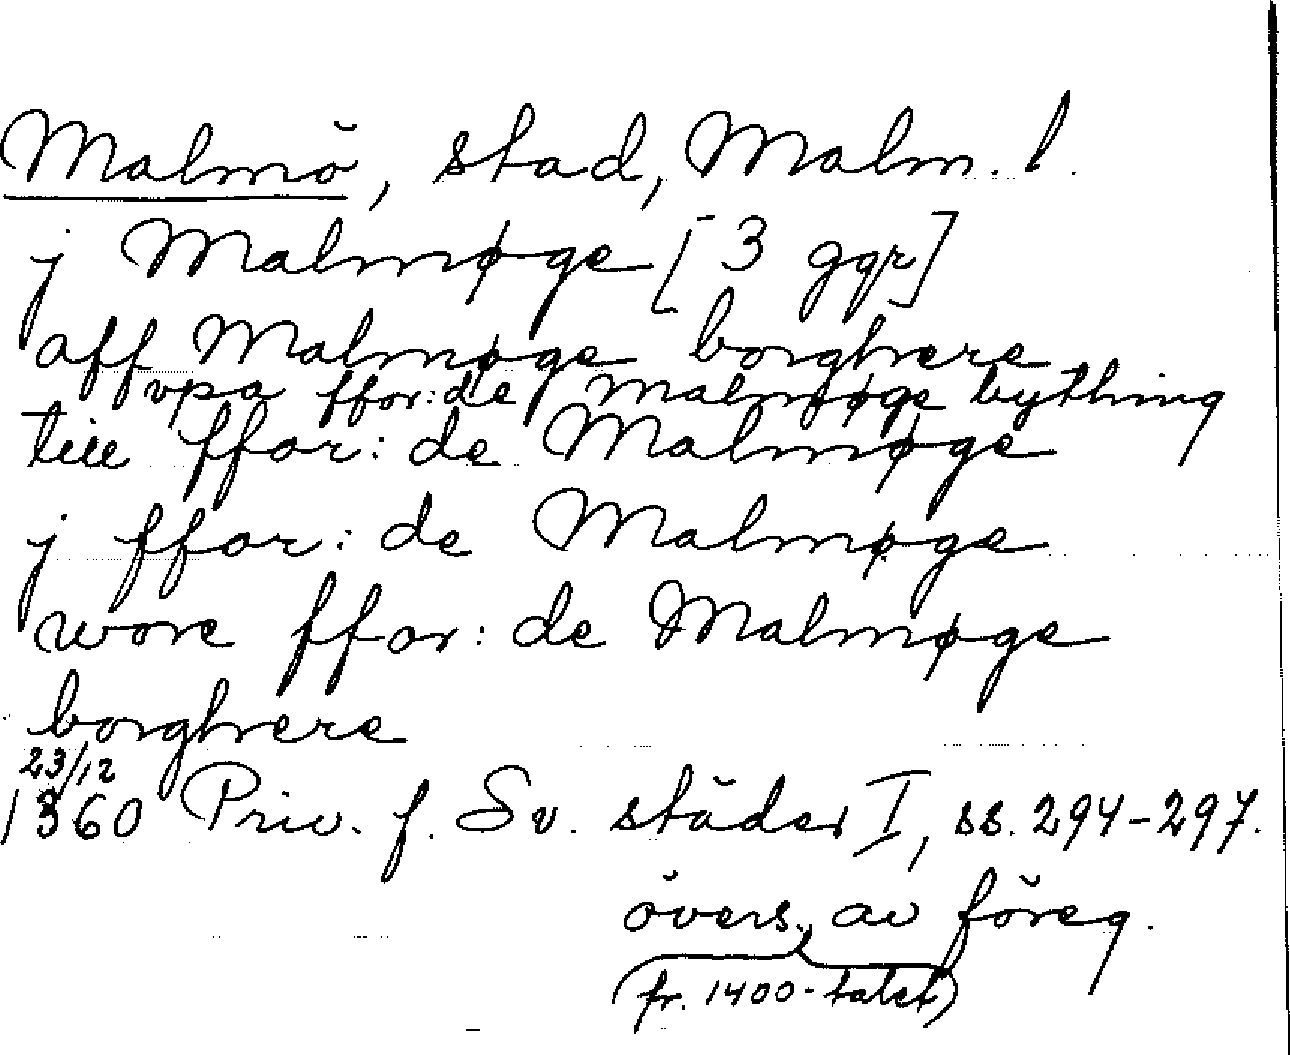 Malmö, stad, Malm. l.
j Malmøge [3 ggr]
aff Malmøge borghere
vpa ffor: de Malmøge bything
till ffor: de Malmøge
j ffor: de Malmøge
wore ffor: de Malmøge
borghere
23/12
1360 Priv. f. Sv. städer I, ss. 294-297.
övers. av föreg.
(fr. 1400-talet)